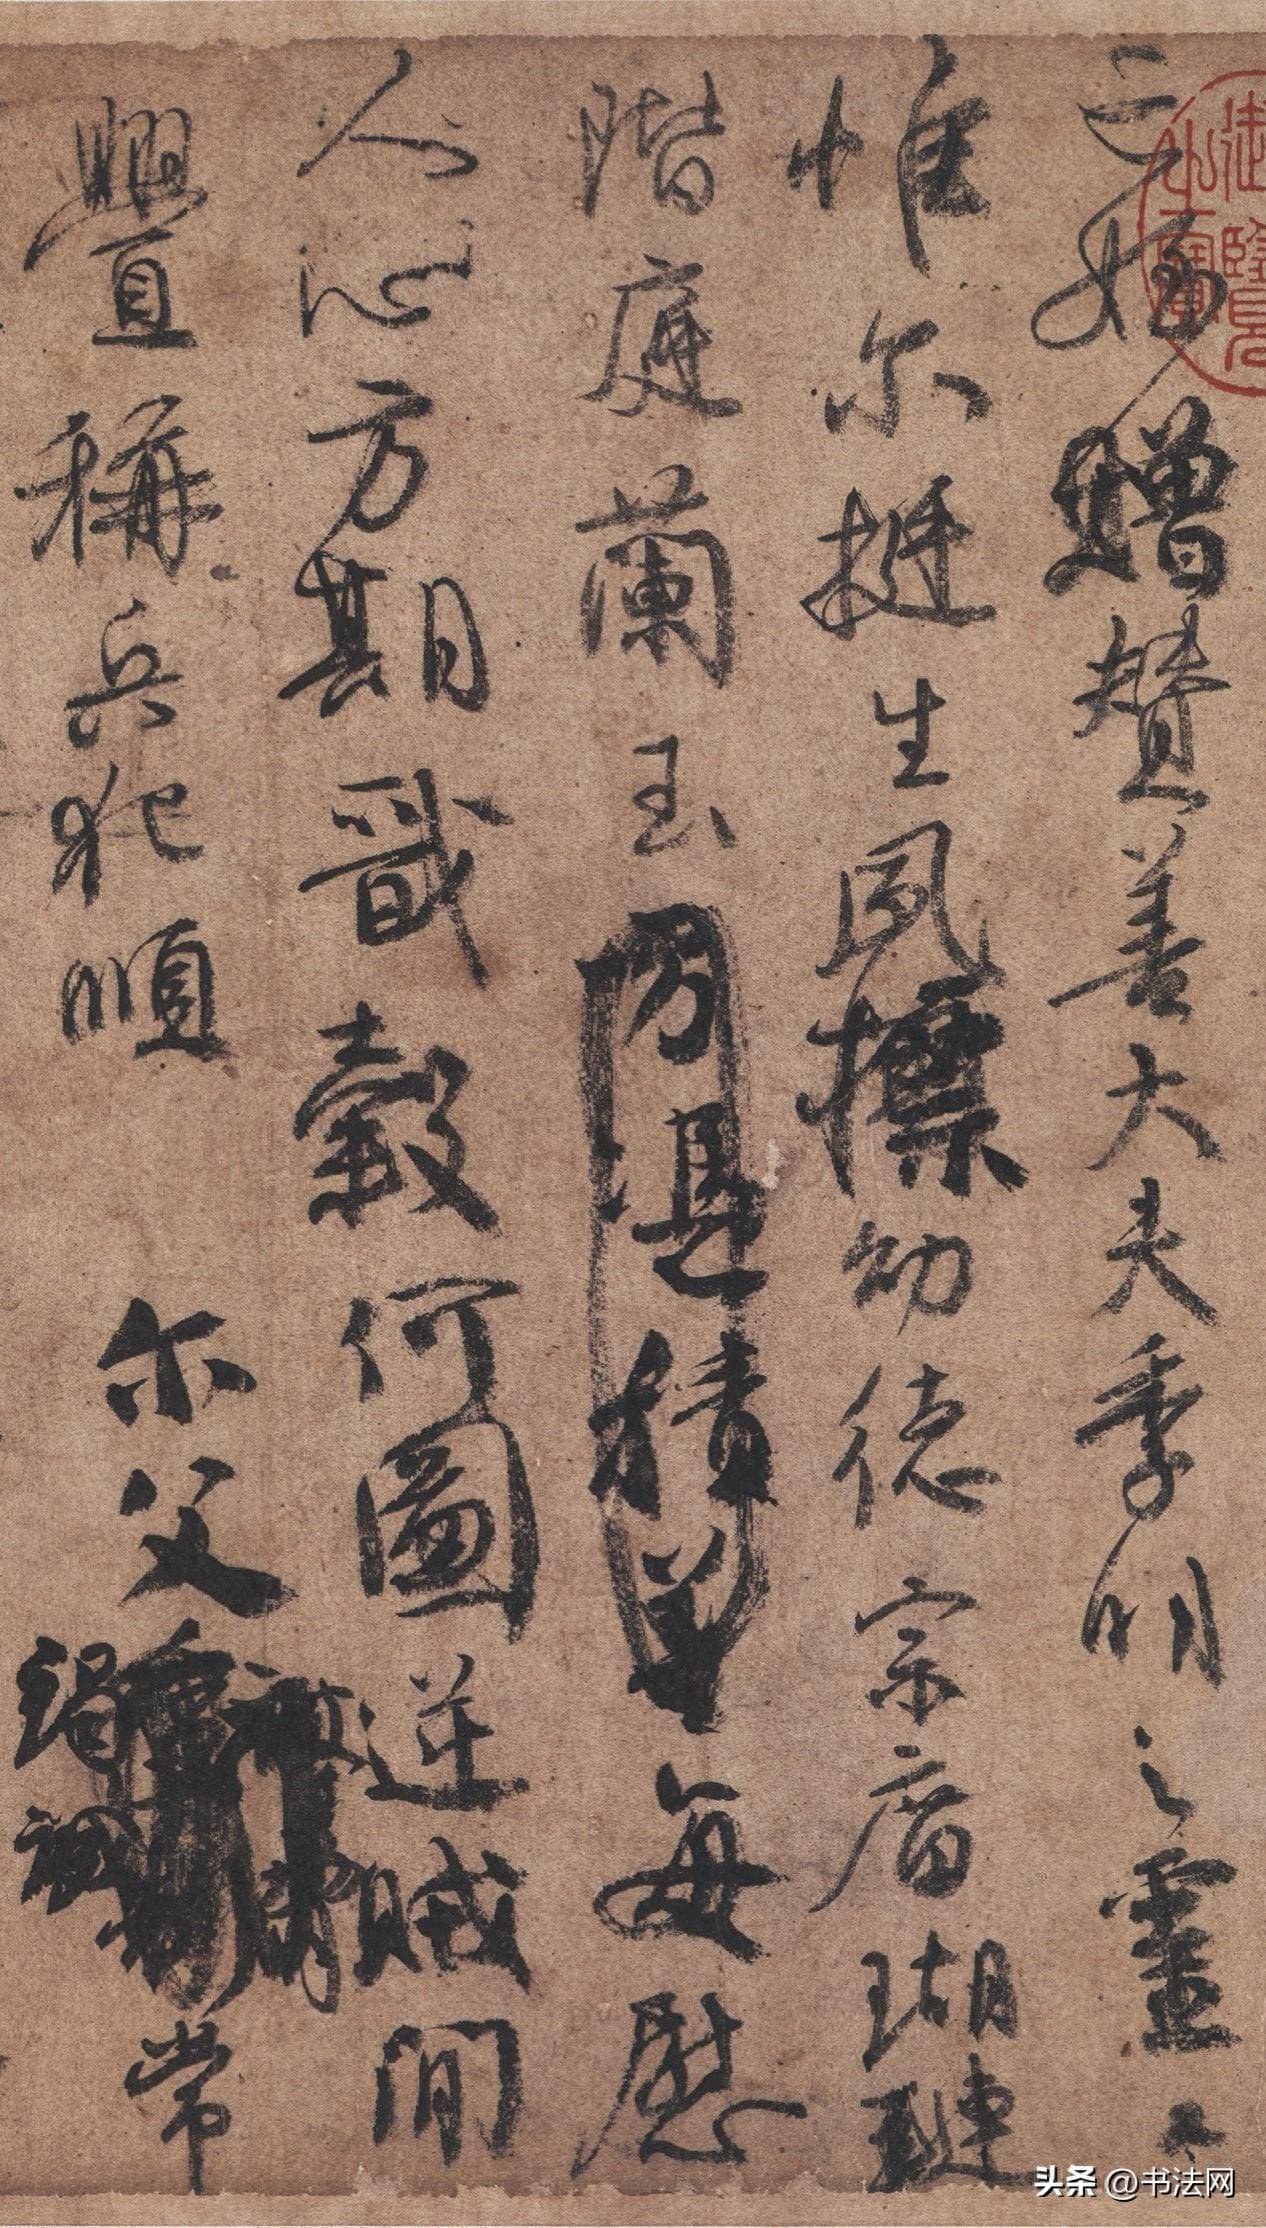 亡姪贈贊善大夫季明之靈
惟尔挺生夙摽幼德宗庿瑚璉
階庭蘭玉每慰
人心方期戩穀何圖逆賊閒
舋稱兵犯順 尔父竭誠常
御覽之寶
头条 @书法网